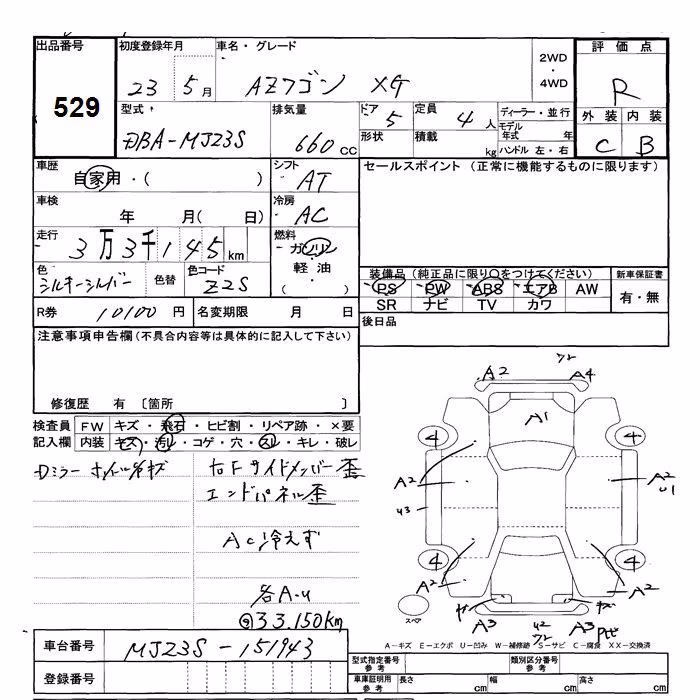 出品番号 初度登録年月 車名・グレード 評価点
529
23 5月 AZワゴン XG 2WD・4WD R
型式 排気量 ドア 定員 ディーラー・並行 外装 内装
DBA-MJ23S 660CC 5 4人 モデル年式 年 C B
形状 積載 kg ハンドル 左・右
車歴 シフト セールスポイント(正常に機能するものに限ります)
自家用・( ) AT
車検 冷房
年 月( 日) AC
走行 燃料
3万3千145km ガソリン
軽油
( )
色 色替 色コード 装備品(純正品に限り○をつけてください) 新車保証書
シルキーシルバー Z2S PS PW ABS エアB AW 有・無
SR ナビ TV カワ
R券 10100円 名変期限 月 日 後日品
注意事項申告欄(不具合内容等は具体的に記入して下さい)
修復歴 有 〔箇所 〕
検査員 FW キズ・飛石・ヒビ割・リペア跡・×要
記入欄 内装 キズ・汚レ・コゲ・穴・スレ・キレ・破レ
右Fサイドメンバー歪
エンドパネル歪
AC冷えず
各A.U
33.150km
A2 フレ A4
A1
4 4
A2 A2
U3 U1
4 4
A2 A2
スペア A3 U2 A3
A-キズ E-エクボ U-凹み W-補修跡 S-サビ C-腐食 XX-交換済
車台番号 MJ23S-151943
登録番号
型式指定番号 参考 類別区分番号 参考
車庫証明用 参考 長さ cm 幅 cm 高さ cm